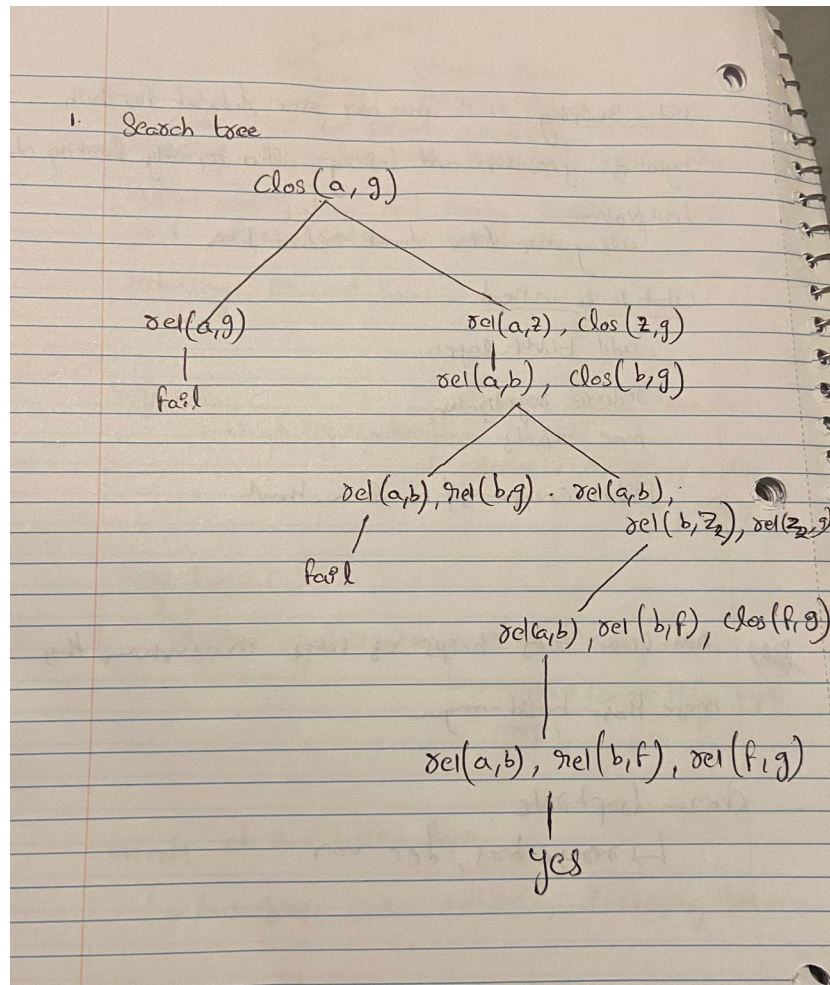 1. Search tree
Clos(a, g)
rel(a,g)
rel(a,z), clos(z,g)
fail
rel(a,b), clos(b,g)
rel(a,b), rel(b,g) . rel(a,b),
rel(b,Z₂), rel(z₂,g)
fail
rel(a,b), rel(b,f), Clos(f,g)
rel(a,b), rel(b,f), rel(f,g)
yes